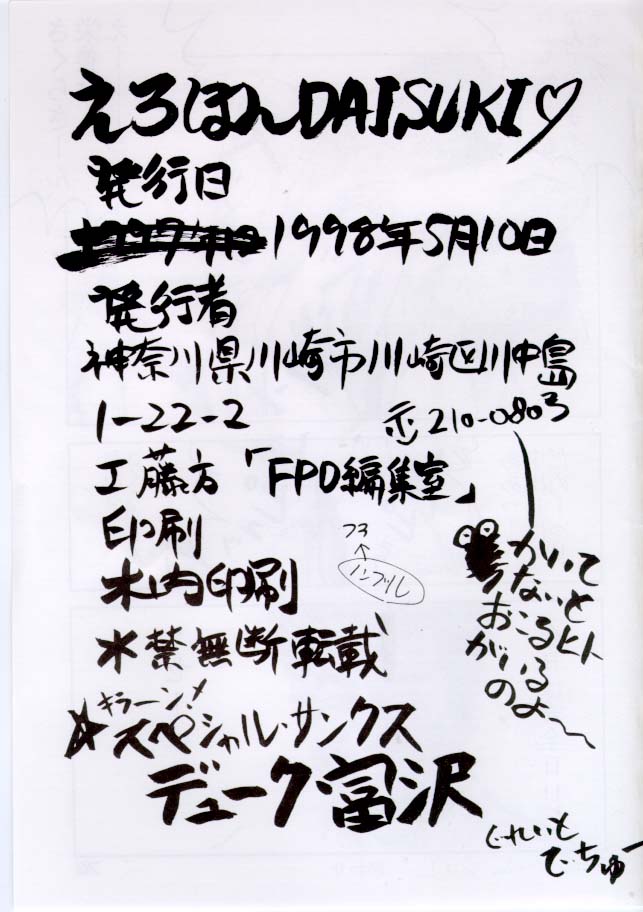 えろほんDAISUKI♡
発行日
1998年5月10日
発行者
神奈川県川崎市川崎区川中島
1-22-2 〒210-0803
工藤方「FPO編集室」
印刷
木内印刷
※禁無断転載
キラーン!
☆スペシャル・サンクス
デューク・富沢
73
ノンブル
かいて
ないと
おこるヒト
がいる
のよ〜
ぐれいと
でちゅー